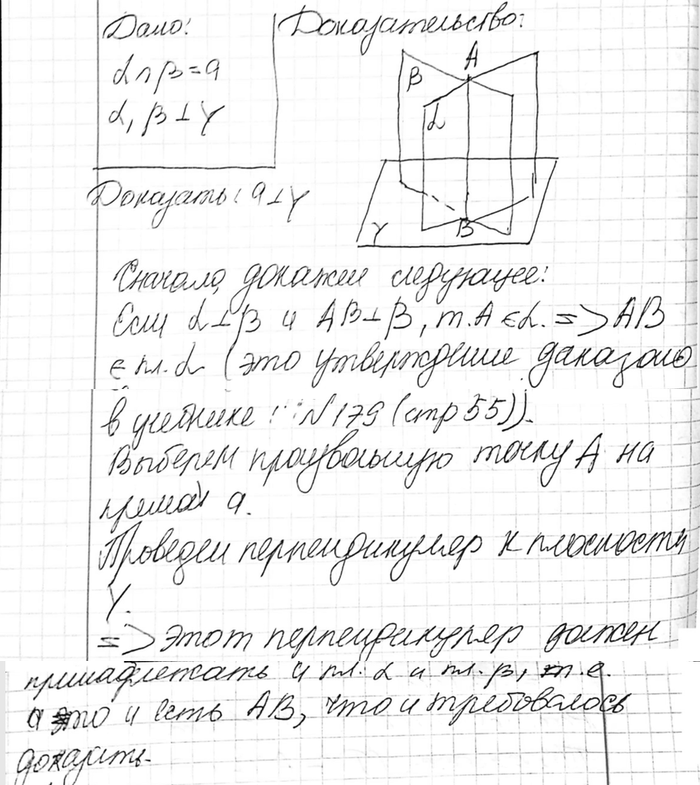 Дано: Доказательство:
α ∩ β = a
α, β ⊥ γ
Доказать: a ⊥ γ
A
β
α
γ
B
Сначала докажем следующее:
Если α ⊥ β и AB ⊥ β, т. A ∈ α. => AB
∈ пл. α (это утверждение даказано
в учебнике : N 179 (стр 55)).
Выберем произвольную точку A на
прямой a.
Проведем перпендикуляр к плоскости
γ.
=> этот перпендикуляр должен
принадлежать и пл. α и пл. β, т.е.
a это и есть AB, что и требовалось
доказать.